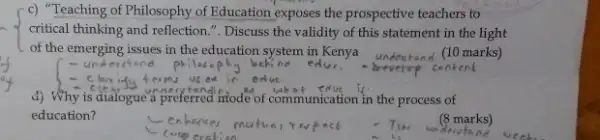 c) "Teaching of Philosophy of Education exposes the prospective teachers to
critical thinking and reflection.". Discuss the validity of this statement in the light
of the emerging issues in the education system in Kenya (10 marks)
understand
- understand philosophy behind educ. - develop content
- clarify terms used in educ.
- clear understanding of what educ is
d) Why is dialogue a preferred mode of communication in the process of
education? (8 marks)
- enhances mutual respect - understand
- cooperation